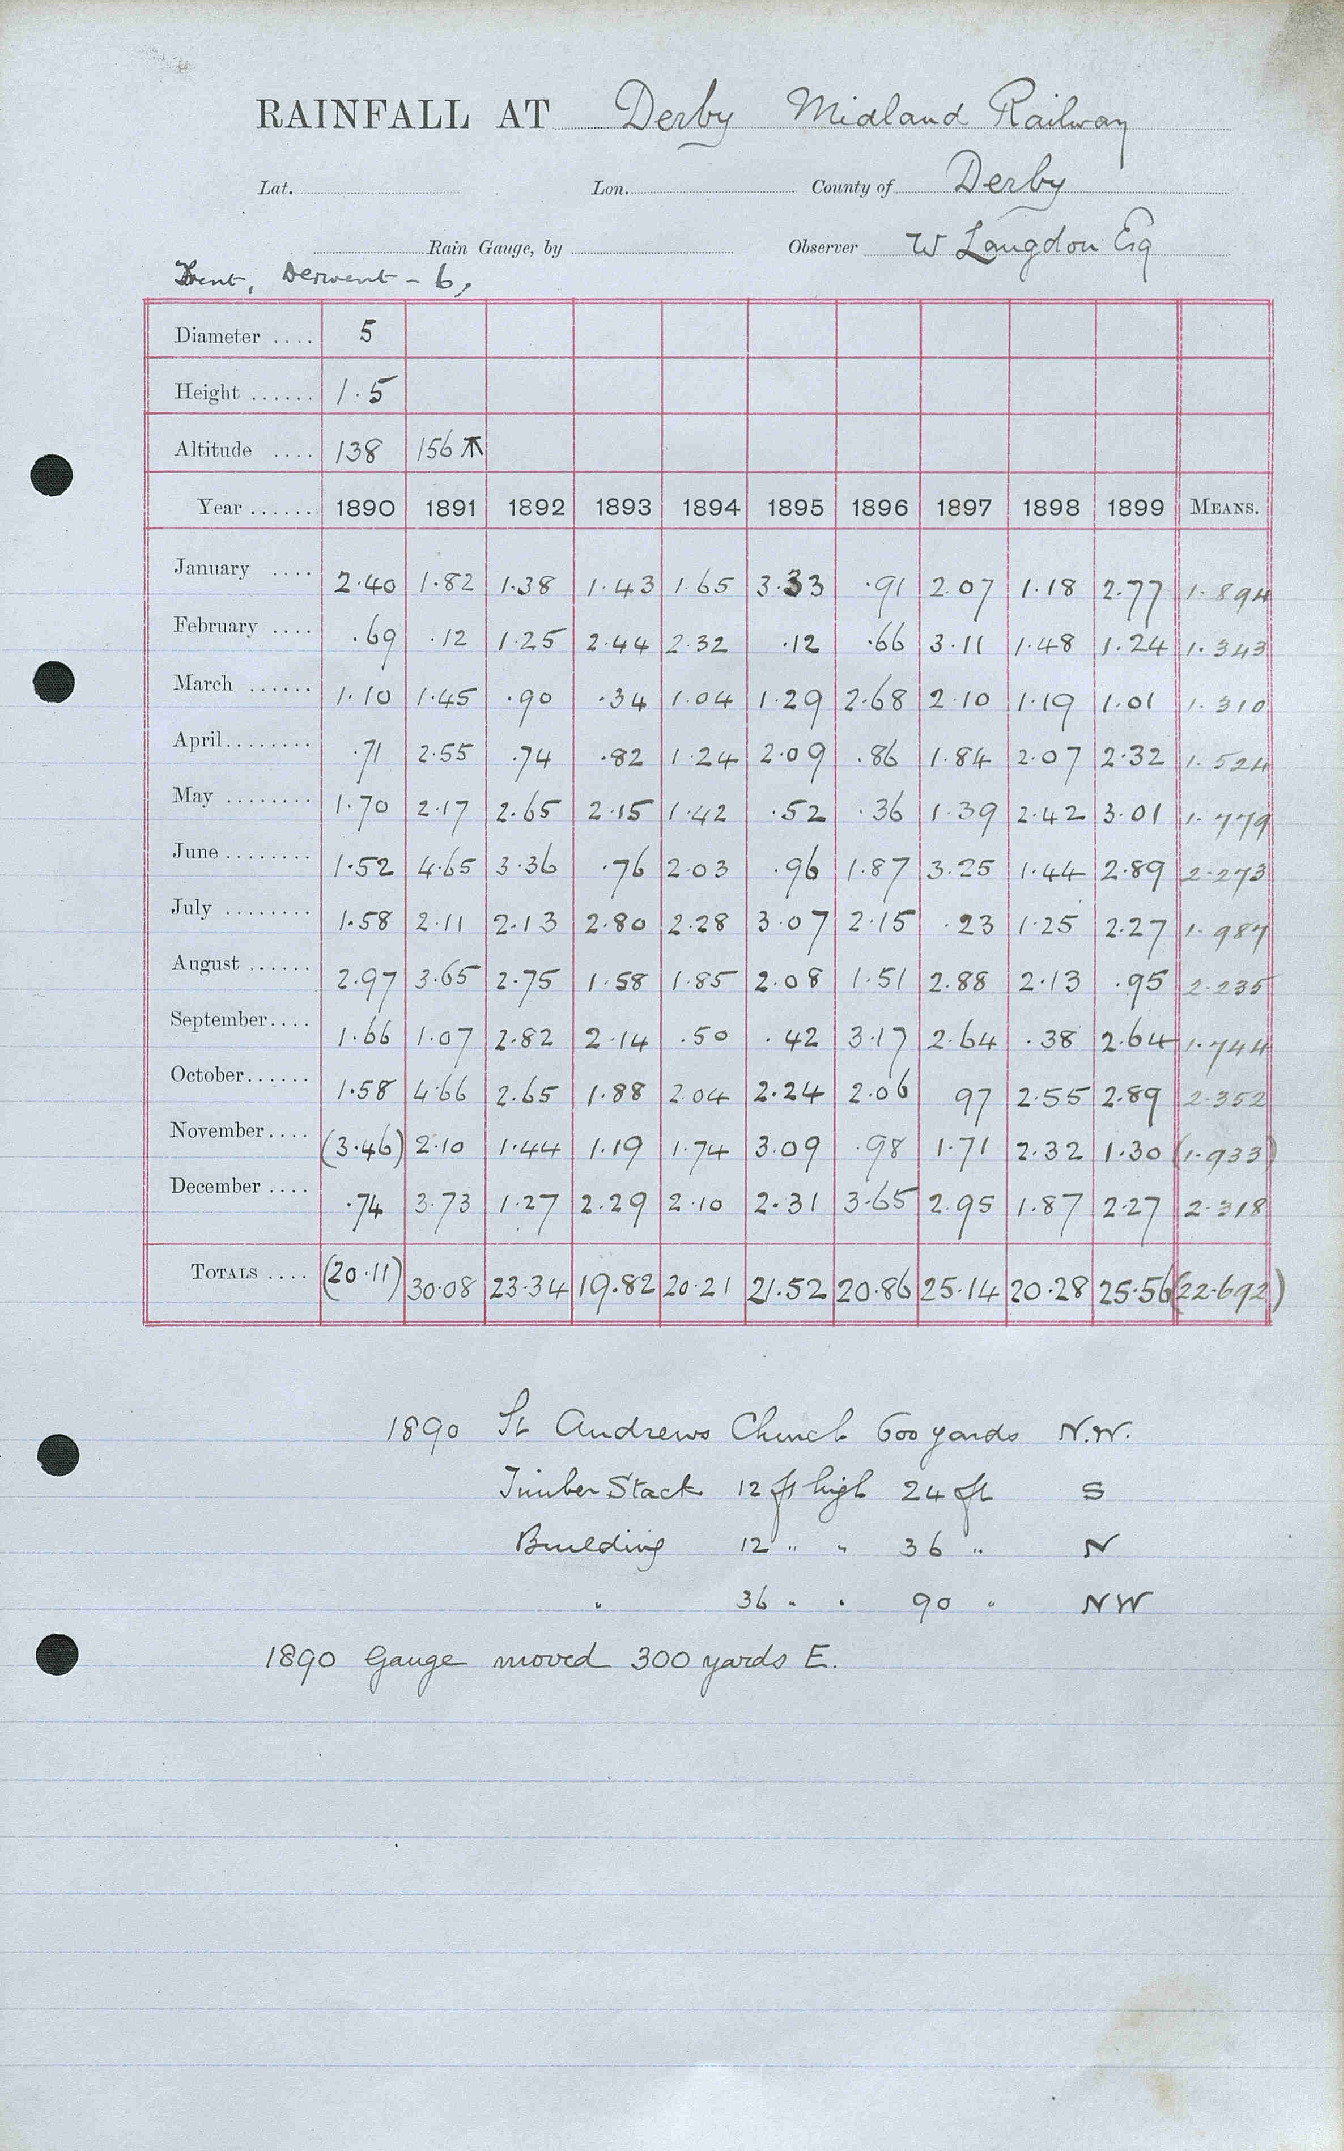 RAINFALL AT Derby Midland Railway
Lat. Lon. County of Derby
Rain Gauge, by Observer W Langdon Esq
Trent, Derwent - 6,
Diameter .... 5
Height ...... 1.5
Altitude .... 138 156
Year ...... 1890 1891 1892 1893 1894 1895 1896 1897 1898 1899 MEANS.
January .... 2.40 1.82 1.38 1.43 1.65 3.33 .91 2.07 1.18 2.77 1.894
February .... .69 .12 1.25 2.44 2.32 .12 .66 3.11 1.48 1.24 1.343
March ...... 1.10 1.45 .90 .34 1.04 1.29 2.68 2.10 1.19 1.01 1.310
April........ .71 2.55 .74 .82 1.24 2.09 .86 1.84 2.07 2.32 1.524
May ........ 1.70 2.17 2.65 2.15 1.42 .52 .36 1.39 2.42 3.01 1.779
June........ 1.52 4.65 3.36 .76 2.03 .96 1.87 3.25 1.44 2.89 2.273
July ........ 1.58 2.11 2.13 2.80 2.28 3.07 2.15 .23 1.25 2.27 1.987
August ...... 2.97 3.65 2.75 1.58 1.85 2.08 1.51 2.88 2.13 .95 2.235
September.... 1.66 1.07 2.82 2.14 .50 .42 3.17 2.64 .38 2.64 1.744
October...... 1.58 4.66 2.65 1.88 2.04 2.24 2.06 97 2.55 2.89 2.352
November.... (3.46) 2.10 1.44 1.19 1.74 3.09 .98 1.71 2.32 1.30 (1.933)
December .... .74 3.73 1.27 2.29 2.10 2.31 3.65 2.95 1.87 2.27 2.318
TOTALS .... (20.11) 30.08 23.34 19.82 20.21 21.52 20.86 25.14 20.28 25.56 (22.692)
1890 St Andrews Church 600 yards N.W.
Timber Stack 12 ft high 24 ft S
Building 12 " " 36 " N
" 36 " " 90 " NW
1890 Gauge moved 300 yards E.